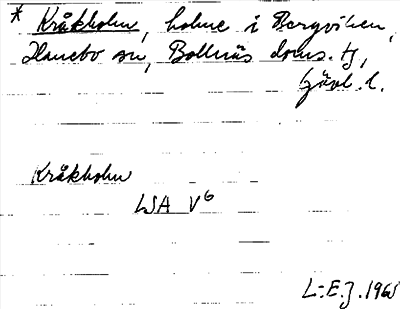 * Kråkholm, holme i Bergviken,
Hanebo sn, Bollnäs doms. tj,
Gävl. l.
Kråkholm
LSA V6
L:E.J. 1965